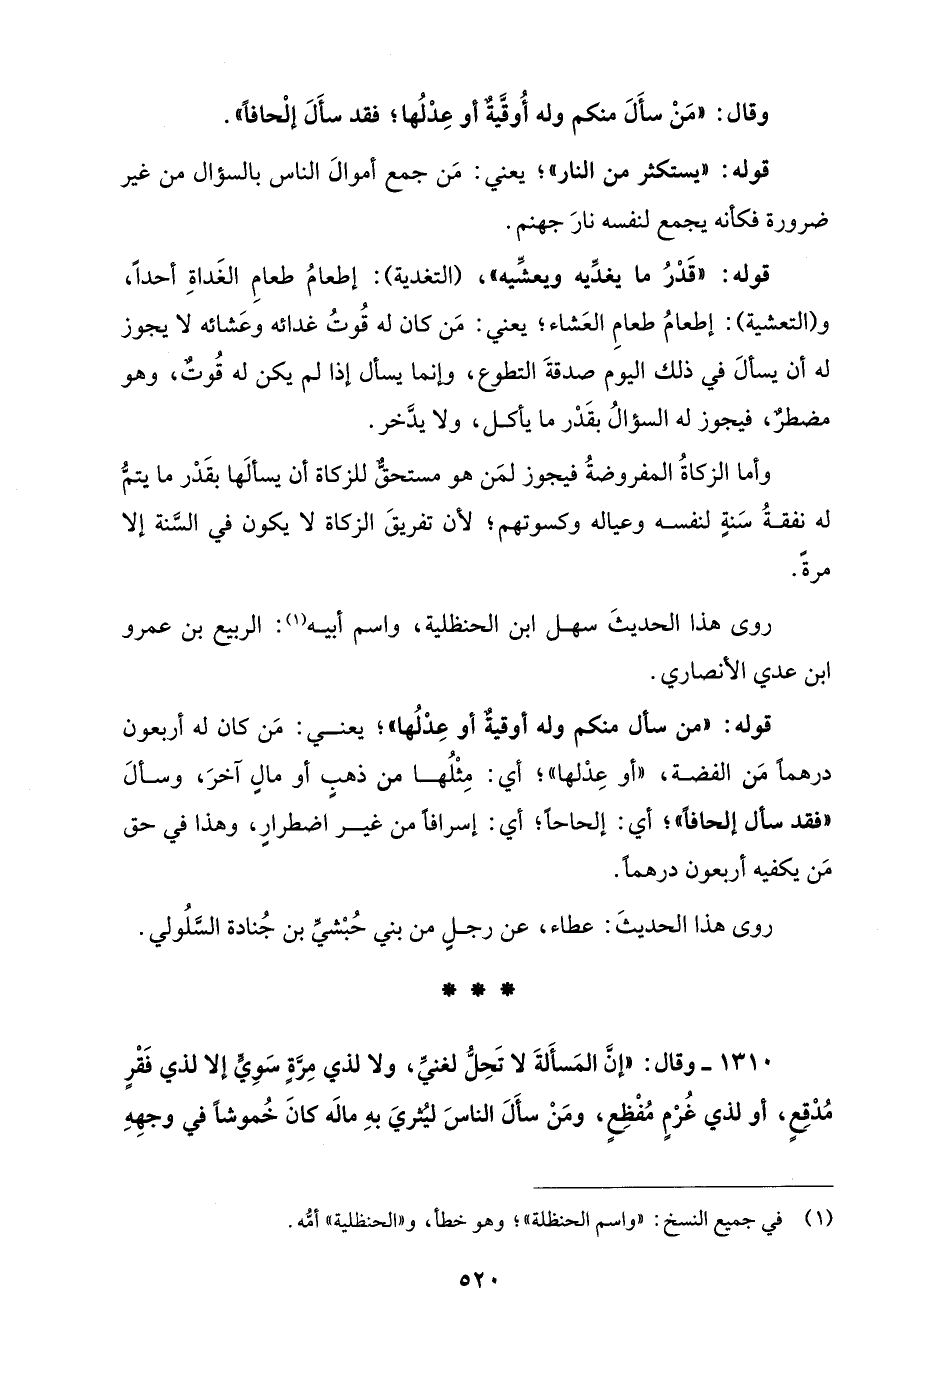 وقال: «مَنْ سأَلَ منكم وله أُوقيَّةٌ أو عِدْلُها؛ فقد سأَلَ إلْحافاً».
قوله: «يستكثر من النار»؛ يعني: مَن جمع أموالَ الناس بالسؤال من غير
ضرورة فكأنه يجمع لنفسه نارَ جهنم.
قوله: «قَدْرُ ما يغدِّيه ويعشِّيه»، (التغدية): إطعامُ طعامِ الغَداةِ أحداً،
و(التعشية): إطعامُ طعامِ العَشاء؛ يعني: مَن كان له قُوتُ غدائه وعَشائه لا يجوز
له أن يسألَ في ذلك اليوم صدقةَ التطوع، وإنما يسأل إذا لم يكن له قُوتٌ، وهو
مضطرٌ، فيجوز له السؤالُ بقَدْر ما يأكل، ولا يدَّخر.
وأما الزكاةُ المفروضةُ فيجوز لمَن هو مستحقٌّ للزكاة أن يسألَها بقَدْر ما يتمُّ
له نفقةُ سَنةٍ لنفسه وعياله وكسوتهم؛ لأن تفريقَ الزكاة لا يكون في السَّنة إلا
مرةً.
روى هذا الحديثَ سهل ابن الحنظلية، واسم أبيه(١): الربيع بن عمرو
ابن عدي الأنصاري.
قوله: «من سأل منكم وله أوقيةٌ أو عِدْلُها»؛ يعني: مَن كان له أربعون
درهماً مَن الفضة، «أو عِدلها»؛ أي: مِثْلُها من ذهبٍ أو مالٍ آخرَ، وسألَ
«فقد سأل إلحافاً»؛ أي: إلحاحاً؛ أي: إسرافاً من غير اضطرارٍ، وهذا في حق
مَن يكفيه أربعون درهماً.
روى هذا الحديثَ: عطاء، عن رجلٍ من بني حُبْشيِّ بن جُنادة السَّلُولي.
* * *
١٣١٠ ـ وقال: «إنَّ المَسأَلةَ لا تَحِلُّ لغنيٍّ، ولا لذي مِرَّةٍ سَوِيٍّ إلا لذي فَقْرٍ
مُدْقِعٍ، أو لذي غُرْمٍ مُفْظِعٍ، ومَنْ سأَلَ الناسَ ليُثريَ بهِ مالَه كانَ خُموشاً في وجهِهِ
(١) في جميع النسخ: «واسم الحنظلة»؛ وهو خطأ، و«الحنظلية» أمُّه.
٥٢٠